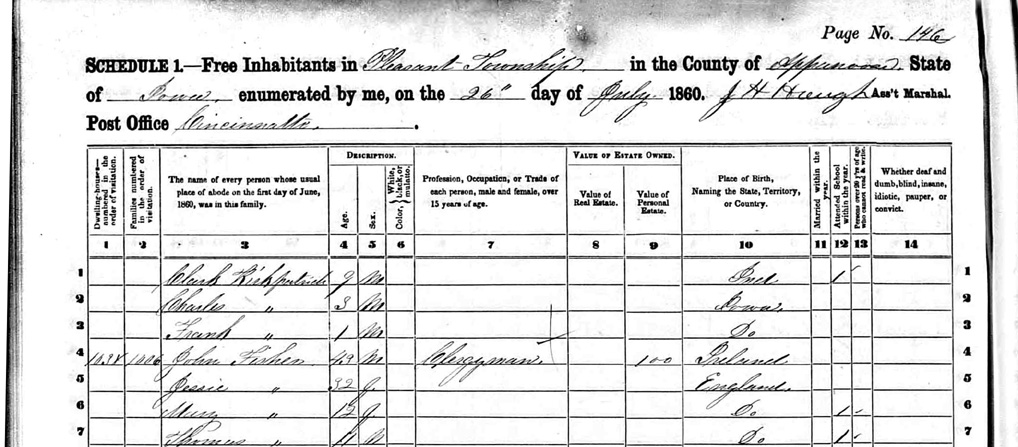 Page No. 146
SCHEDULE 1.—Free Inhabitants in Pleasant Township in the County of Appanoose State
of Iowa enumerated by me, on the 26" day of July 1860. J H Hough Ass't Marshal.
Post Office Cincinnatti.
Dwelling-houses— numbered in the order of visitation. Families numbered in the order of visitation. The name of every person whose usual place of abode on the first day of June, 1860, was in this family. DESCRIPTION. Age. Sex. Color, { White, black, or mulatto. Profession, Occupation, or Trade of each person, male and female, over 15 years of age. VALUE OF ESTATE OWNED. Value of Real Estate. Value of Personal Estate. Place of Birth, Naming the State, Territory, or Country. Married within the year. Attended School within the year. Persons over 20 y'rs of age who cannot read & write. Whether deaf and dumb, blind, insane, idiotic, pauper, or convict.
1 2 3 4 5 6 7 8 9 10 11 12 13 14
1 Clark Kirkpatrick 9 M Ind 1 1
2 Charles " 3 M Iowa 2
3 Frank " 1 M Do 3
4 John Fisher M Clergyman 100 Ireland 4
5 Jessie " 32 f England 5
6 Mary " 12 f Do 1 6
7 Thomas " 11 M Do 1 7